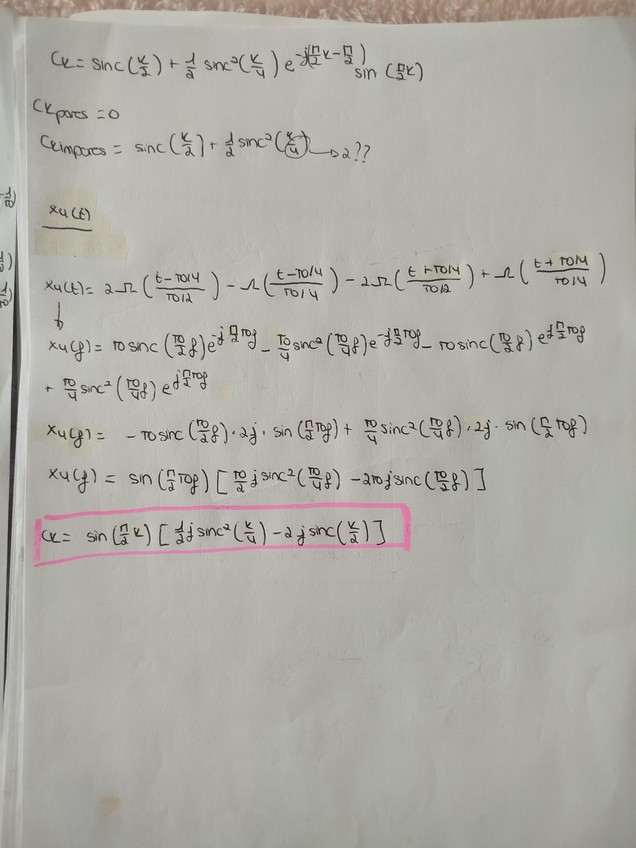 Ck = sinc(k/2) + 1/2 sinc²(k/4) e^-j(π/2 k - π/2) sin(π/2 k)
Ck pares = 0
Ck impares = sinc(k/2) + 1/2 sinc²(k/4) → 2??
x4(t)
x4(t) = 2Ω((t-T0/4)/(T0/2)) - Ω((t-T0/4)/(T0/4)) - 2Ω((t+T0/4)/(T0/2)) + Ω((t+T0/4)/(T0/4))
↓
x4(f) = T0 sinc(T0/2 f) e^-j π/2 T0f - T0/4 sinc²(T0/4 f) e^-j π/2 T0f - T0 sinc(T0/2 f) e^j π/2 T0f
+ T0/4 sinc²(T0/4 f) e^j π/2 T0f
x4(f) = - T0 sinc(T0/2 f)·2j·sin(π/2 T0f) + T0/4 sinc²(T0/4 f)·2j·sin(π/2 T0f)
x4(f) = sin(π/2 T0f) [T0/2 j sinc²(T0/4 f) - 2T0 j sinc(T0/2 f)]
Ck = sin(π/2 k) [1/2 j sinc²(k/4) - 2j sinc(k/2)]